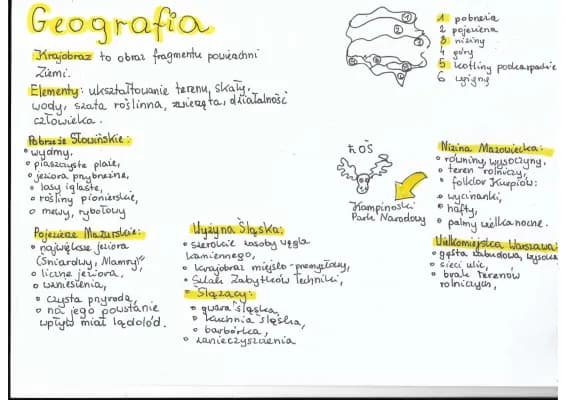 Geografia
Krajobraz to obraz fragmentu powierzchni
Ziemi.
Elementy: ukształtowanie terenu, skały,
wody, szata roślinna, zwierzęta, działalność
człowieka.
1 pobrzeża
2 pojezierza
3 niziny
4 góry
5 kotliny podkarpackie
6 wyżyny
Pobrzeże Słowińskie:
wydmy,
piaszczyste plaże,
jeziora przybrzeżne,
lasy iglaste,
rośliny pionierskie,
mewy, rybołowy
Pojezierze Mazurskie:
największe jeziora
(Śniardwy, Mamry),
liczne jeziora,
wzniesienia,
czysta przyroda,
na jego powstanie
wpływ miał lądolód.
Wyżyna Śląska:
szerokie zasoby węgla
kamiennego,
krajobraz miejsko-przemysłowy,
Szlak Zabytków Techniki,
Ślązacy:
gwara śląska,
kuchnia śląska,
barbórka,
zanieczyszczenia
ŁOŚ
Kampinoski
Park Narodowy
Nizina Mazowiecka:
równiny, wysoczyny,
teren rolniczy,
folklor Kurpiów:
wycinanki,
hafty,
palmy wielkanocne.
Wielkomiejska Warszawa:
gęsta zabudowa, wysoka
sieci ulic,
brak terenów
rolniczych,